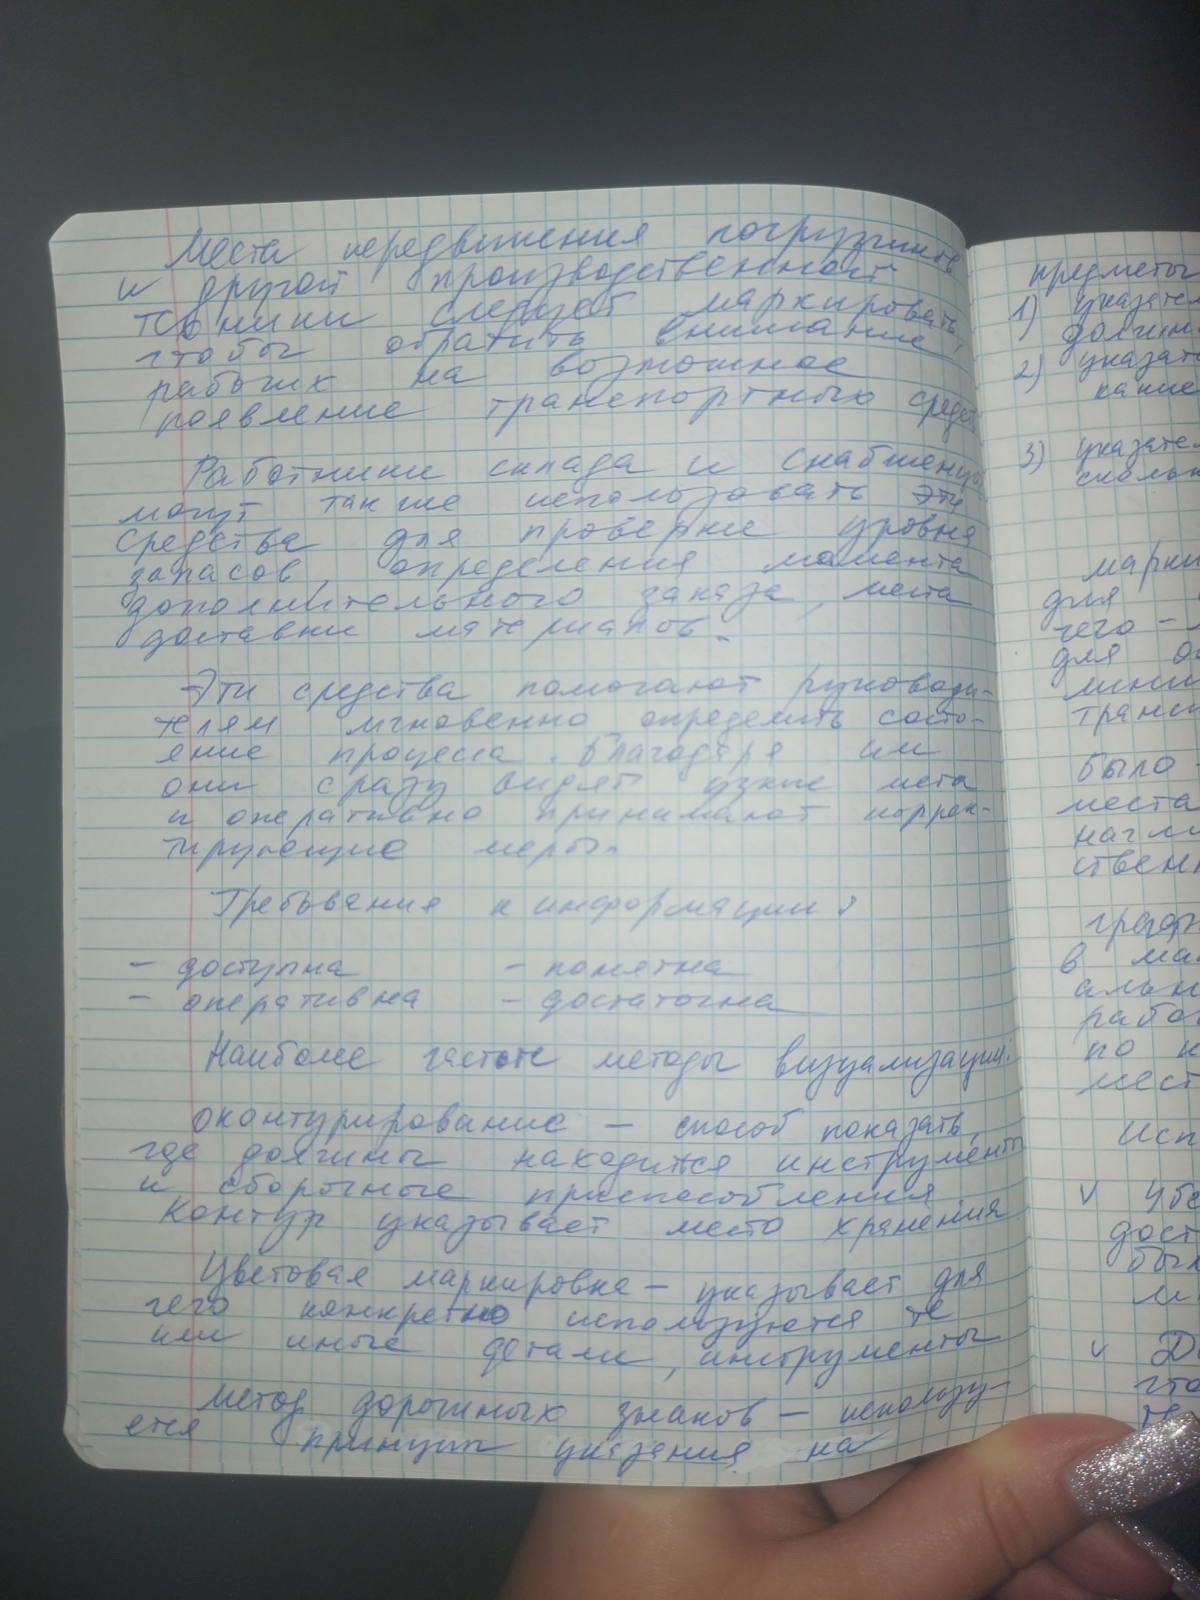 Места передвижения погрузчиков
и другой производственной
техники следует маркировать,
чтобы обратить внимание
рабочих на возможное
появление транспортных средств
Работники склада и снабженцы
могут также использовать эти
средства для проверки уровня
запасов, определения момента
дополнительного заказа, места
доставки материалов.
Эти средства помогают руководи-
телям мгновенно определить состо-
яние процесса. Благодаря им
они сразу видят узкие места
и оперативно принимают коррек-
тирующие меры.
Требования к информации:
- доступна - понятна
- оперативна - достаточна
Наиболее частые методы визуализации:
оконтурирование — способ показать,
где должны находится инструменты
и сборочные приспособления
Контур указывает место хранения
Цветовая маркировка — указывает для
чего конкретно используются те
или иные детали, инструменты
метод дорожных знаков — использу-
ется принцип указания на
предметы
1)
2)
3)
для
чего -
для
было
места
в
по
v
v